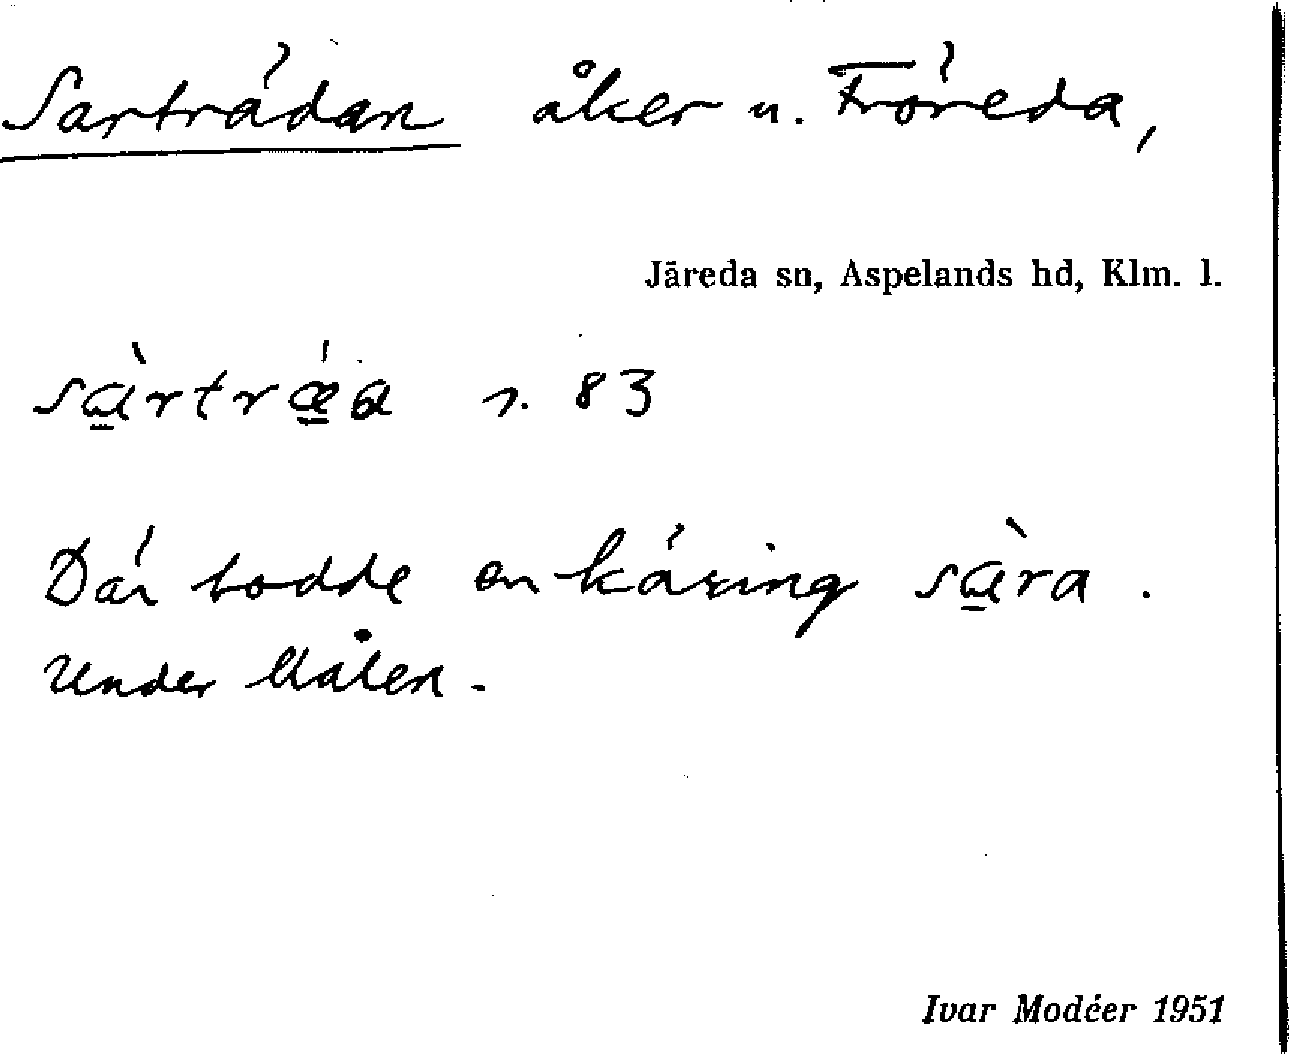 Sarträdan åker u. Fröreda,
Järeda sn, Aspelands hd, Klm. l.
sàrtrǽa s. 83
Där bodde en käring sàra.
Under Målen.
Ivar Modéer 1951